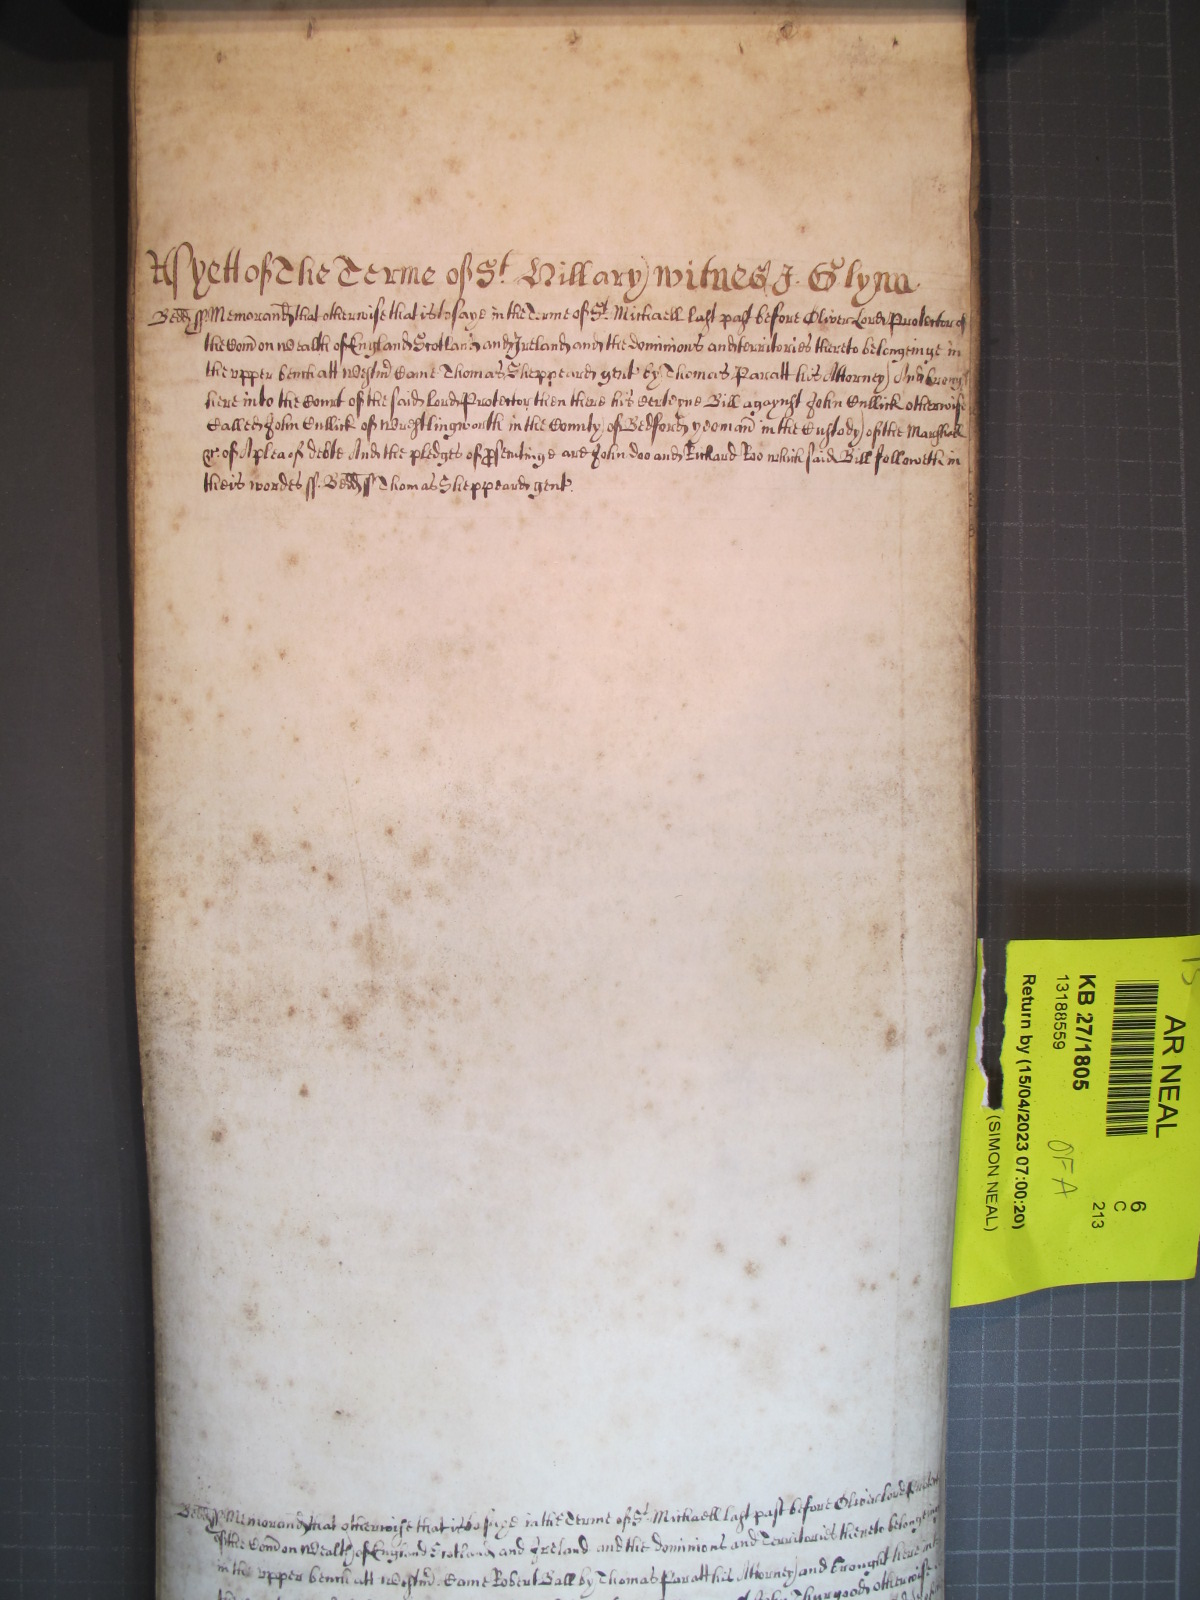 As yett of the Terme of St. Hillary witnes J. Glynn.
Bedd ss Memorand that otherwise that is to saye in the Terme of St. Michaell last past before Oliver Lord Protector of
the Comon wealth of England Scotland and Ireland and the dominions and territories thereto belonginge in
the vpper bench att Westmr Came Thomas Sheppeard gent by Thomas Paratt his Attorney And brought
here into the Court of the said Lord Protector then there his Certeyne Bill agaynst John Cullick otherwise
Called John Cullick of Wrestlingworth in the County of Bedford yeoman in the Custody of the Marshall
&c. of A plea of debte And the pledges of psecutinge are John Doo and Richard Roo which said Bill followeth in
theis wordes ss. Bedd ss Thomas Sheppeard gent.
Bedd ss Memorand that otherwise that is to saye in the Terme of St. Michaell last past before Oliver Lord Protector
of the Comon wealth of England Scotland and Ireland and the dominions and Territories thereto belonginge
in the vpper bench att Westmr. Came Robert Ball by Thomas Paratt his Attorney and brought here into
John Thurgood otherwise
AR NEAL
KB 27/1805
13188559
Return by (15/04/2023 07:00:20)
(SIMON NEAL)
OFA
6
C
213
15